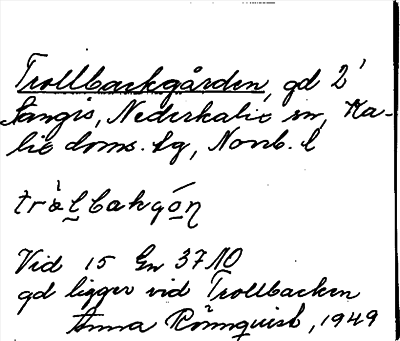 Trollbackgården, gd 2'
Sangis, Nederkalix sn, Ka-
lix doms. tg, Norrb. l
tròlbakgó̱n
Vid 15 Gn 37 NO
gd ligger vid Trollbacken
Anna Rönnquist, 1949